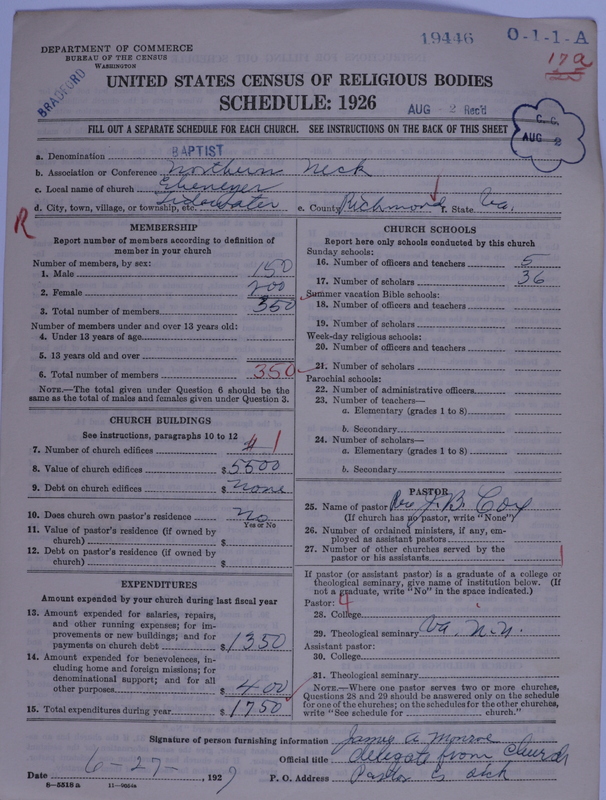 19446 0-1-1-A
17a
DEPARTMENT OF COMMERCE
BUREAU OF THE CENSUS
WASHINGTON
BRADFORD
UNITED STATES CENSUS OF RELIGIOUS BODIES
SCHEDULE: 1926
AUG 2 Rec'd
C. C.
AUG 2
FILL OUT A SEPARATE SCHEDULE FOR EACH CHURCH. SEE INSTRUCTIONS ON THE BACK OF THIS SHEET
a. Denomination BAPTIST
b. Association or Conference Northern Neck
c. Local name of church Ebenezer
d. City, town, village, or township, etc. Tidewater e. County Richmond f. State Va.
R
MEMBERSHIP
Report number of members according to definition of
member in your church
Number of members, by sex:
1. Male 150
2. Female 200
3. Total number of members 350
Number of members under and over 13 years old:
4. Under 13 years of age
5. 13 years old and over
6. Total number of members 350
NOTE.—The total given under Question 6 should be the
same as the total of males and females given under Question 3.
CHURCH BUILDINGS
See instructions, paragraphs 10 to 12
7. Number of church edifices 1
8. Value of church edifices $ 5500
9. Debt on church edifices $ None
10. Does church own pastor's residence No
Yes or No
11. Value of pastor's residence (if owned by
church) $
12. Debt on pastor's residence (if owned by
church) $
EXPENDITURES
Amount expended by your church during last fiscal year
13. Amount expended for salaries, repairs,
and other running expenses; for im-
provements or new buildings; and for
payments on church debt $ 1350
14. Amount expended for benevolences, in-
cluding home and foreign missions; for
denominational support; and for all
other purposes $ 400
15. Total expenditures during year $ 1750
CHURCH SCHOOLS
Report here only schools conducted by this church
Sunday schools:
16. Number of officers and teachers 5
17. Number of scholars 36
Summer vacation Bible schools:
18. Number of officers and teachers
19. Number of scholars
Week-day religious schools:
20. Number of officers and teachers
21. Number of scholars
Parochial schools:
22. Number of administrative officers
23. Number of teachers—
a. Elementary (grades 1 to 8)
b. Secondary
24. Number of scholars—
a. Elementary (grades 1 to 8)
b. Secondary
PASTOR
25. Name of pastor Rev J. B. Cox
(If church has no pastor, write "None")
26. Number of ordained ministers, if any, em-
ployed as assistant pastors
27. Number of other churches served by the
pastor or his assistants 1
If pastor (or assistant pastor) is a graduate of a college or
theological seminary, give name of institution below. (If
not a graduate, write "No" in the space indicated.)
Pastor: 4
28. College
29. Theological seminary Va. N. N.
Assistant pastor:
30. College
31. Theological seminary
NOTE.—Where one pastor serves two or more churches,
Questions 28 and 29 should be answered only on the schedule
for one of the churches; on the schedules for the other churches,
write "See schedule for church."
Signature of person furnishing information James A Monroe
Official title delegate from Church
Date 6-27-, 1927 P. O. Address
8-5518 a 11-9054a